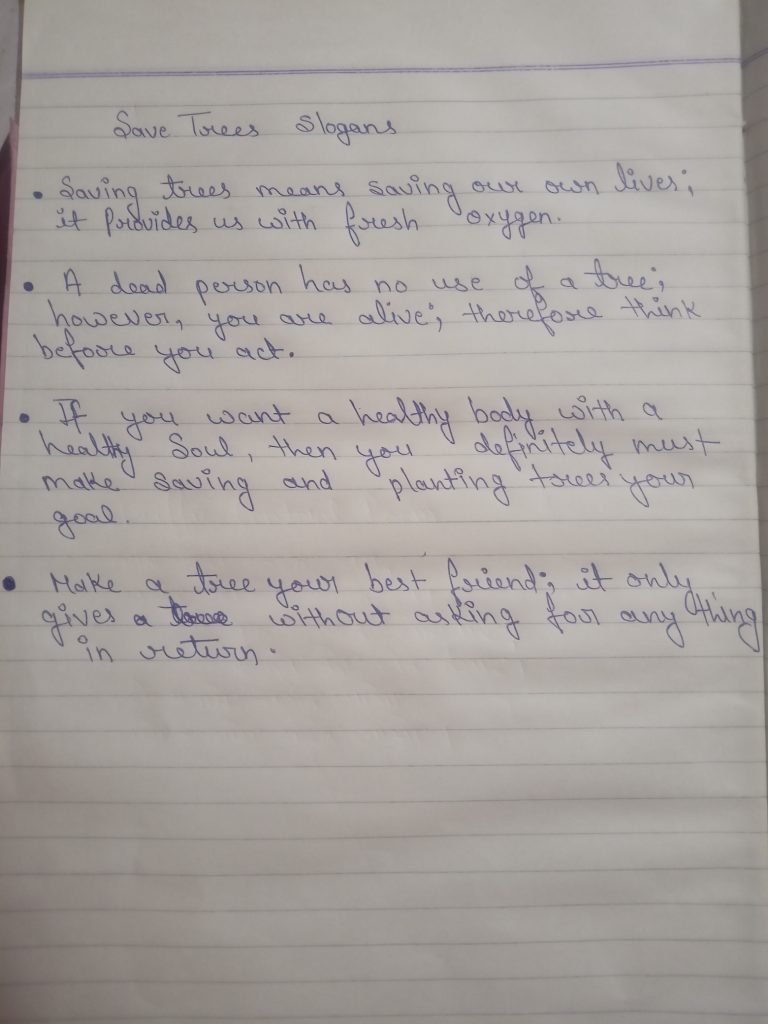 Save Trees Slogans
• Saving trees means saving our own lives;
it provides us with fresh oxygen.
• A dead person has no use of a tree;
however, you are alive; therefore think
before you act.
• If you want a healthy body with a
healthy Soul, then you definitely must
make saving and planting trees your
goal.
• Make a tree your best friend; it only
gives without asking for any thing
in return.